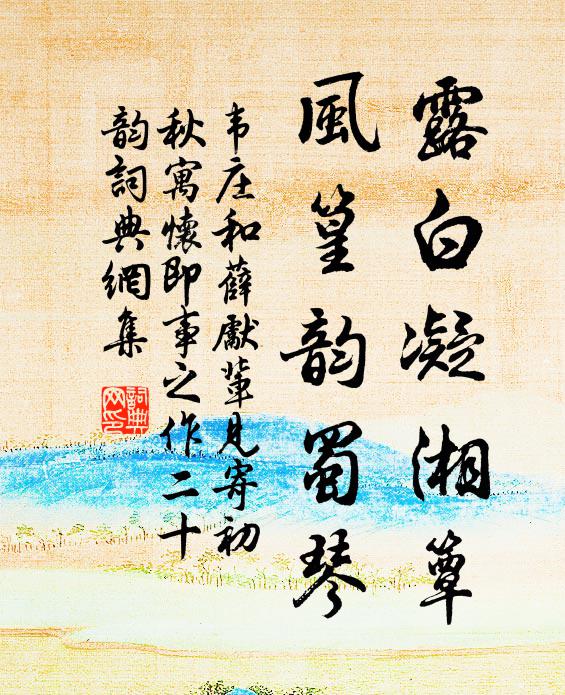 露白凝湘簟
風篁韵蜀琴
韦庄和薛獻輩見寄初
秋寓懷即事之作二十
韵詞典網集
詞典
网印